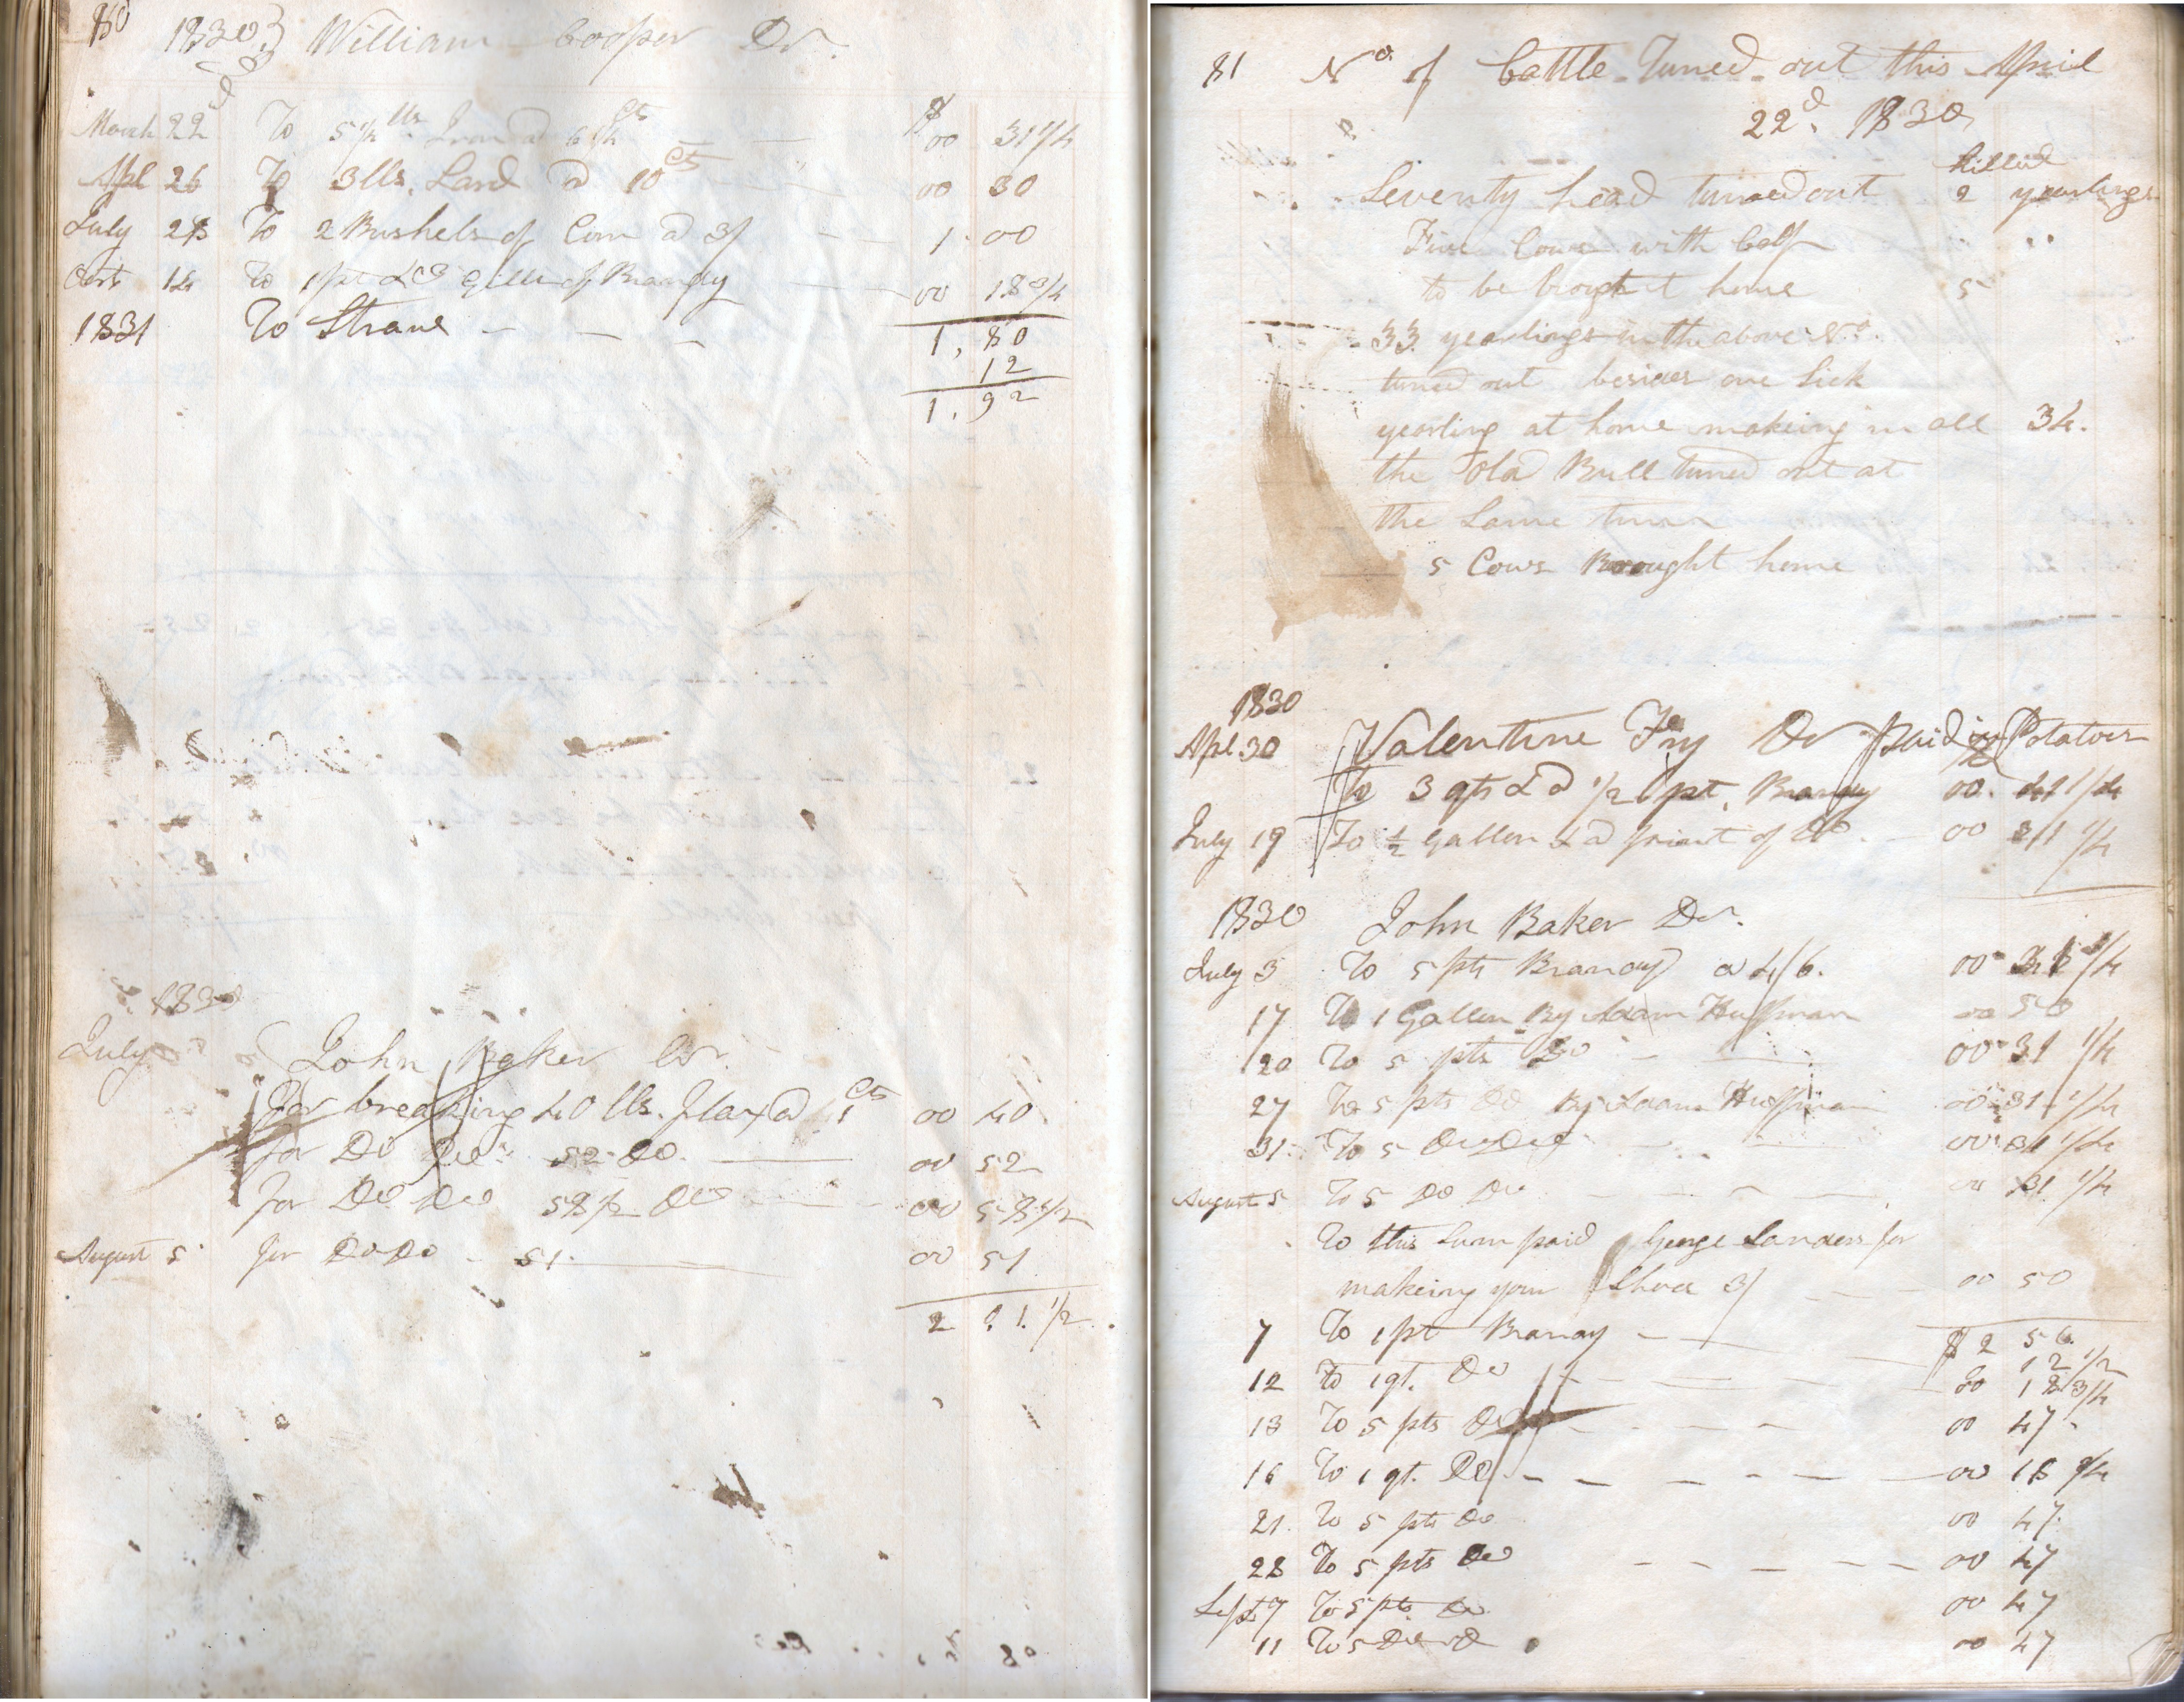 80 1830 William Cooper Dr.
March 22d To 5 1/2 lbs Iron @ 6 1/4 cts $ 00 31 1/4
Apl 26 To 3 lbs. Lard @ 10 cts 00 30
July 28 To 2 Bushels of Corn @ 3/ 1.00
Oct 14 To 1 pt & 3 Gills of Brandy 00 18 3/4
1831 To Straw 1,80
12
1.92
1830
July John Baker Cr.
For breaking 40 lbs. flax @ 1 cts 00 40
for Do Do 52 Do. 00 52
for Do Do 58 1/2 Do 00 58 1/2
August 5 for Do Do 51 00 51
2 01 1/2
80
81 No. of Cattle Turned out this April
22d. 1830
killed
Seventy head turned out 2 yearlings
Five Cows with Calf
to be brought home 5
33 yearlings in the above No.
turned out besides one Sick
yearling at home making in all 34.
the old Bull turned out at
the Same time
5 Cows Brought home
1830
Apl 30 Valentine Fry Dr paid in Potatoes
To 3 qts & a 1/2 pt. Brandy 00. 41 1/4
July 19 To 1/2 Gallon & a print of Do. 00 31 1/4
1830 John Baker Dr.
July 3 To 5 pts Brandy @ 4/6. 00 31 1/4
17 To 1 Gallon By Adam Huffman 00 50
20 To 5 pts Do 00 31 1/4
27 To 5 pts Do By Adam Huffman 00 31 1/4
31 To 5 Do Do 00 31 1/4
August 5 To 5 Do Do 00 31 1/4
To this Sum paid George Sanders for
makeing your Shoes 3/ 00 50
7 To 1 pt Brandy $2 56
12 1/2
12 To 1 qt. Do 00 18 3/4
13 To 5 pts Do 00 47
16 To 1 qt. Do 00 18 3/4
21 To 5 pts Do 00 47
28 To 5 pts Do 00 47
Sept 7 To 5 pts Do 00 47
11 To 5 Do Do 00 47